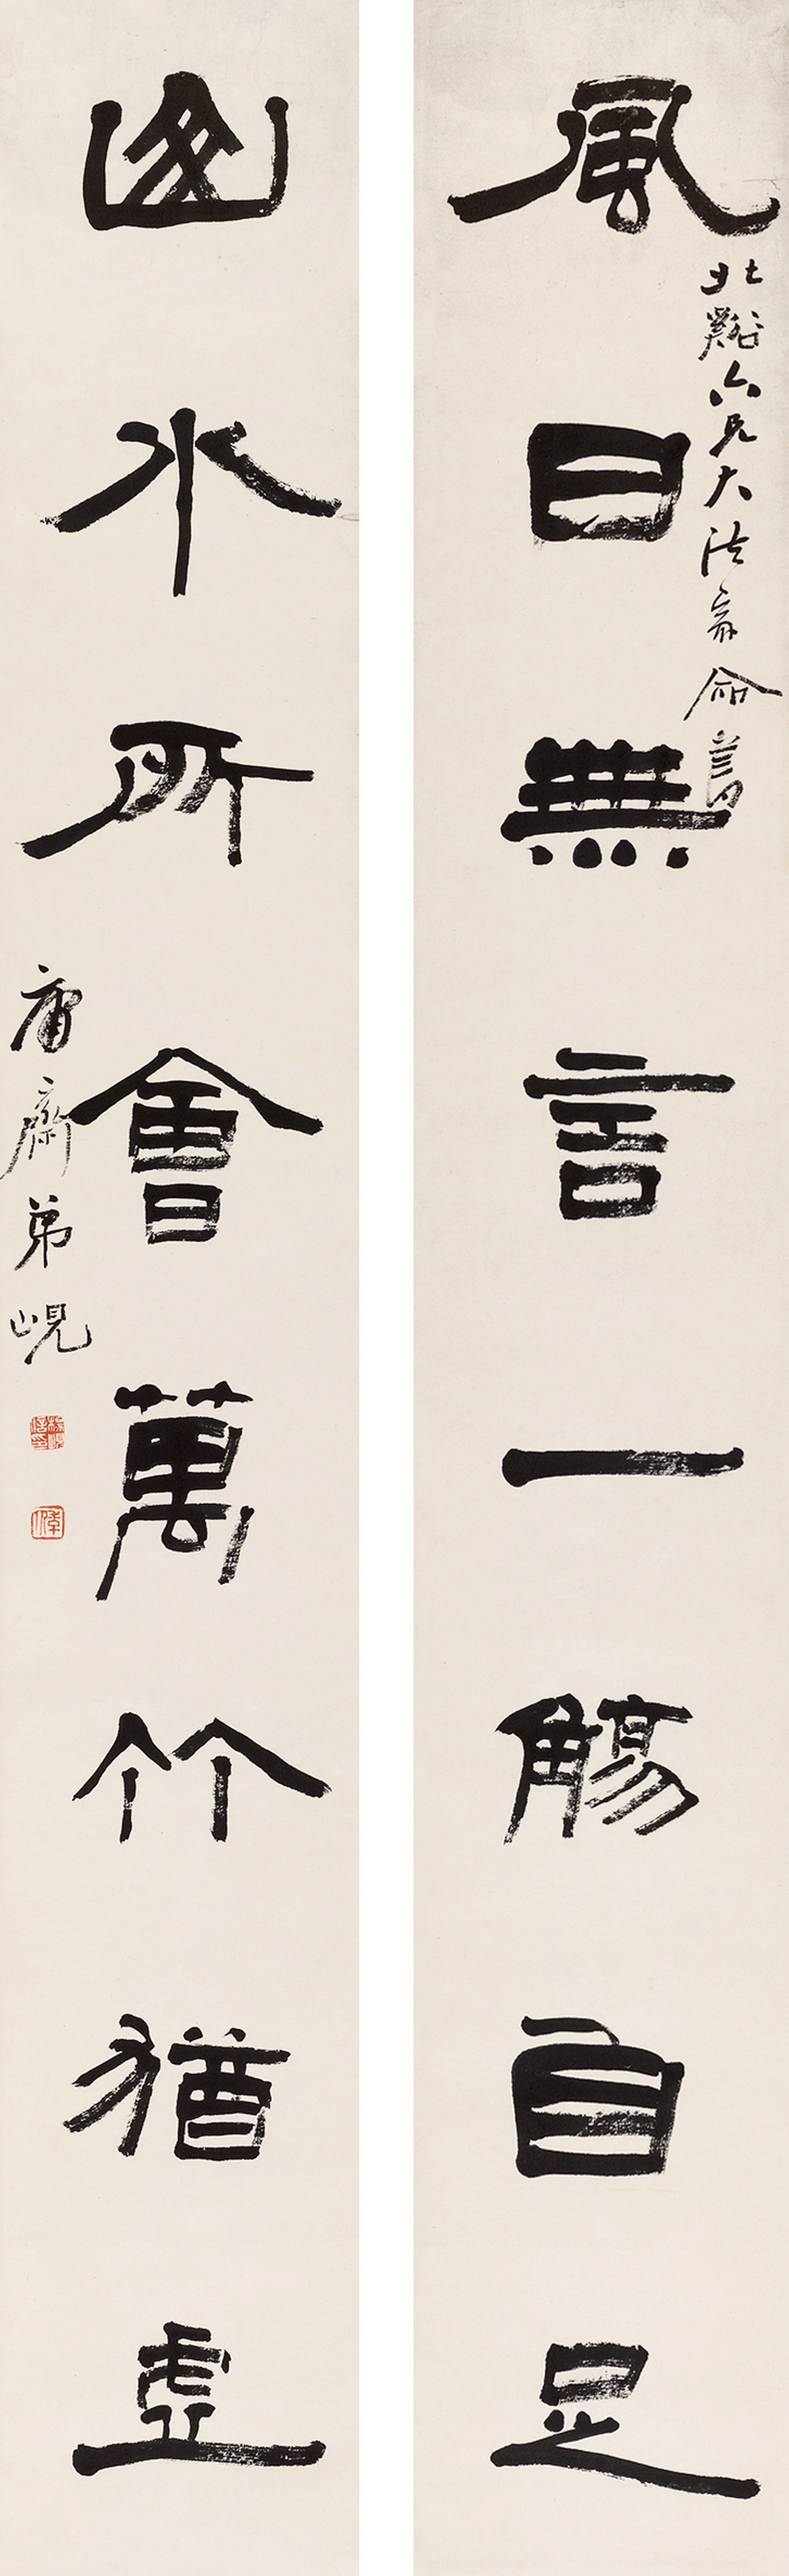 風日無言一觴自足
北谿六兄大法家命書
山水所會萬竹猶虛
庸齋弟峴